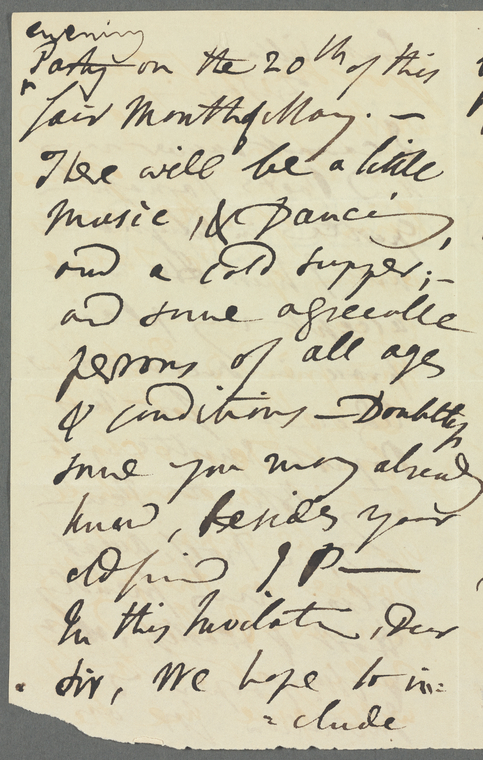 evening
Party on the 20th of this
fair Month of May. —
There will be a little
music, & Dancing,
and a cold supper; —
and some agreeable
persons of all ages
& conditions — Doubtless
some you may already
know, besides your
old friend J P —
In this Invitation, Dear
Sir, We hope to in=
=clude